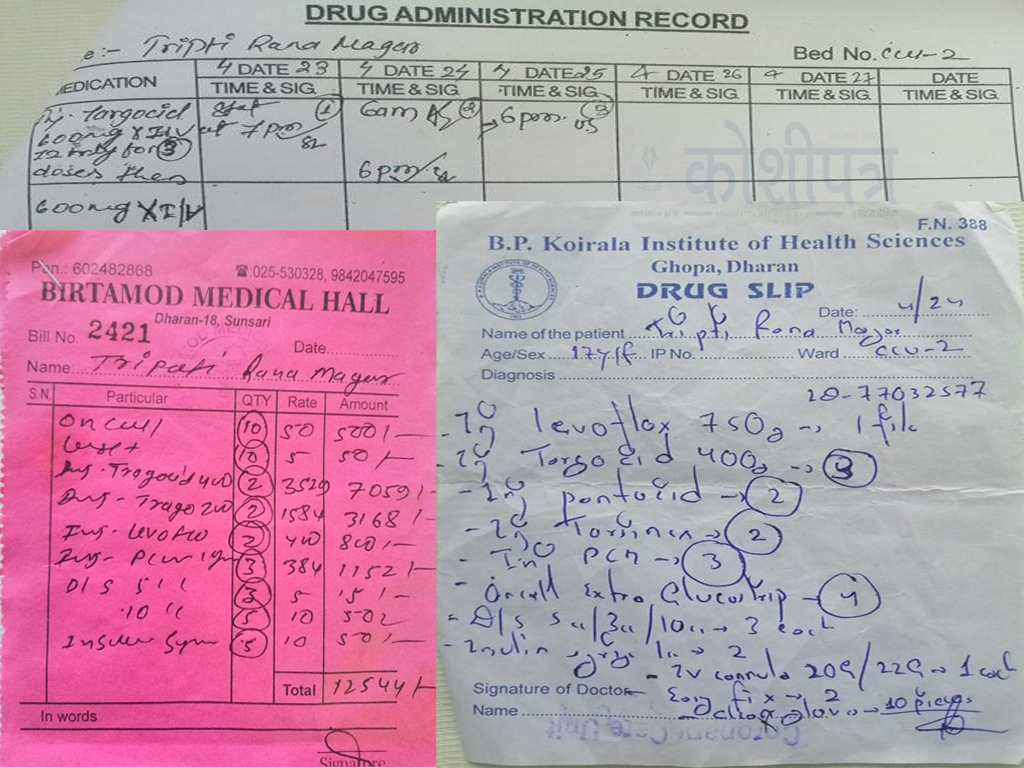 DRUG ADMINISTRATION RECORD
e:- Tripti Rana Mager
Bed No. CCU-2
MEDICATION 4 DATE 23 4 DATE 24 4 DATE 25 4 DATE 26 4 DATE 27 DATE
TIME & SIG. TIME & SIG. TIME & SIG. TIME & SIG. TIME & SIG. TIME & SIG.
Targocid stat 1 6am 2 6pm 3
600mg X I/V at 7pm
for 3
doses then 6pm
600mg X I/V
कोशीपत्र
Pan.: 602482868 ☎:025-530328, 9842047595
BIRTAMOD MEDICAL HALL
Dharan-18, Sunsari
Bill No. 2421
Date
Name: Tripati Rana Mager
S.N. Particular QTY Rate Amount
on call 10 50 500/-
10 5 50/-
Inj. Tragocid 400 2 3529 7059/-
Inj - Trago 200 2 1584 3168/-
Inj. Levoflo 2 400 800/-
Inj - Pcm 1gm 3 384 1152/-
D/S 5cc 3 5 15/-
10 cc 5 10 50
Insulin Syrn 5 10 50/-
Total 12544/-
In words
Signature
F.N. 388
B.P. Koirala Institute of Health Sciences
Ghopa, Dharan
DRUG SLIP
Date: 4/24
Name of the patient Tripti Rana Magar
Age/Sex 17y/f IP No. Ward CCU-2
Diagnosis
77032577
- Inj levoflox 750g → 1
- Inj Torgocid 400g → 3
- Inj pantocid → 2
- Inj → 2
- Inj PCM → 3
- Oncall Extra Glucostrip → 4
- D/S 5cc/3cc/10cc → 3 each
- Insulin → 2
- IV cannula 20G/22G → 1 each
Signature of Doctor Easy fix → 2
Name glove → 10 pieces
Coronary Care Unit